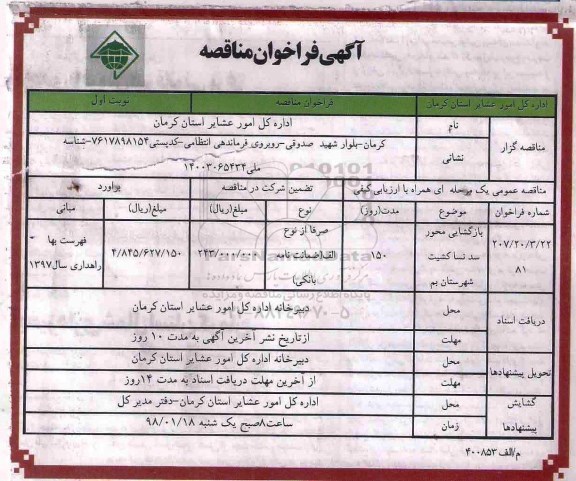 آگهی فراخوان مناقصه
اداره کل امور عشایر استان کرمان فراخوان مناقصه نوبت اول
مناقصه گزار نام اداره کل امور عشایر استان کرمان
نشانی کرمان-بلوار شهید صدوقی-روبروی فرماندهی انتظامی-کدپستی۷۶۱۷۸۹۸۱۵۴-شناسه
ملی۱۴۰۰۳۰۶۵۴۳۴
مناقصه عمومی یک مرحله ای همراه با ارزیابی کیفی تضمین شرکت در مناقصه براورد
شماره فراخوان موضوع مدت(روز) نوع مبلغ(ریال) مبلغ(ریال) مبانی
۲۰۷/۲۰/۳/۲۲
۸۱
بازگشایی محور
سد نسا کشیت
شهرستان بم
۱۵۰
صرفا از نوع
الف(ضمانت نامه
بانکی)
۲۴۳/۰۰۰/۰۰۰
۴/۸۴۵/۶۲۷/۱۵۰
فهرست بها
راهداری سال۱۳۹۷
دریافت اسناد محل دبیرخانه اداره کل امور عشایر استان کرمان
مهلت ازتاریخ نشر آخرین آگهی به مدت ۱۰ روز
تحویل پیشنهادها محل دبیرخانه اداره کل امور عشایر استان کرمان
مهلت از آخرین مهلت دریافت اسناد به مدت ۱۴روز
گشایش پیشنهادها محل اداره کل امور عشایر استان کرمان-دفتر مدیر کل
زمان ساعت۸صبح یک شنبه ۹۸/۰۱/۱۸
م/الف ۴۰۰۸۵۳